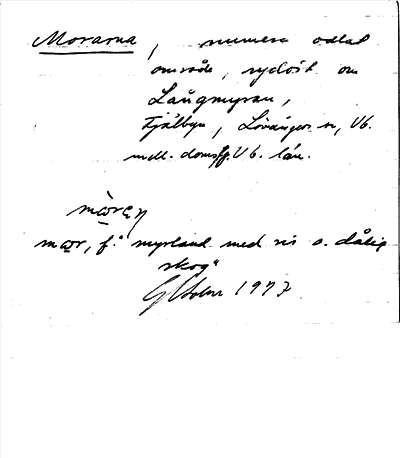 Morarna, numera odlat
område, sydost om
Långmyran,
Fjälbyn, Lövångers sn, Vb.
mell. doms. Vb. län.
mòraṇ
mor, f. "myrland med ris o. dålig
skog"
1977